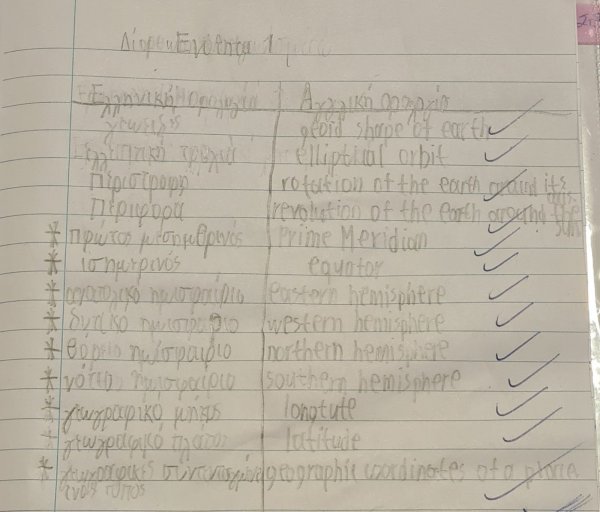 Ενότητα 1
Ελληνική Αγγλική
γεωειδές geoid shape of earth
τροχιά elliptical orbit
Περιστροφή rotation of the earth around its
Περιφορά revolution of the earth around the
* πρώτος μεσημβρινός Prime Meridian
* ισημερινός equator
* ανατολικό ημισφαίριο eastern hemisphere
* δυτικό ημισφαίριο western hemisphere
* βόρειο ημισφαίριο northern hemisphere
* νότιο ημισφαίριο southern hemisphere
* γεωγραφικό μήκος longtute
* γεωγραφικό πλάτος latitude
* γεωγραφικές geographic coordinates of a place
τόπος